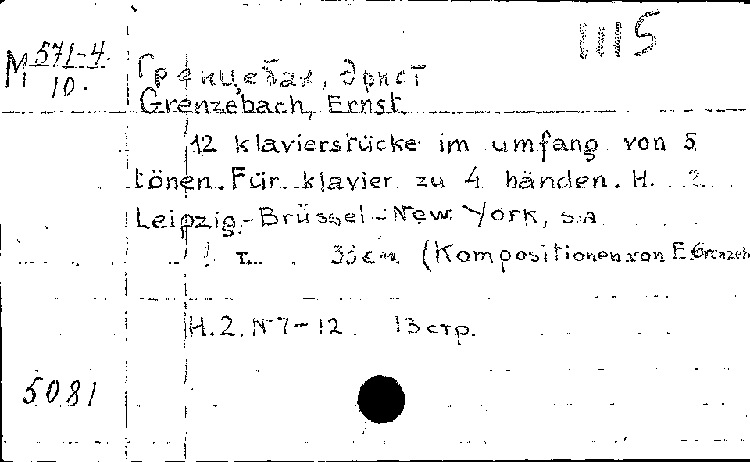 1115
М 571-4
10.
Гренцебах, Эрнст
Grenzebach, Ernst
12 klavierstücke im umfang von 5
tönen. Für klavier zu 4 händen. H. 2
Leipzig-Brüssel-New York, s.a
1 т. 33 см (Kompositionen von E. Grenzeb
H.2. N 7-12 13 стр.
5081